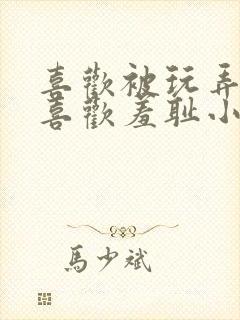 喜歡被玩弄
喜歡羞耻小
馬少斌